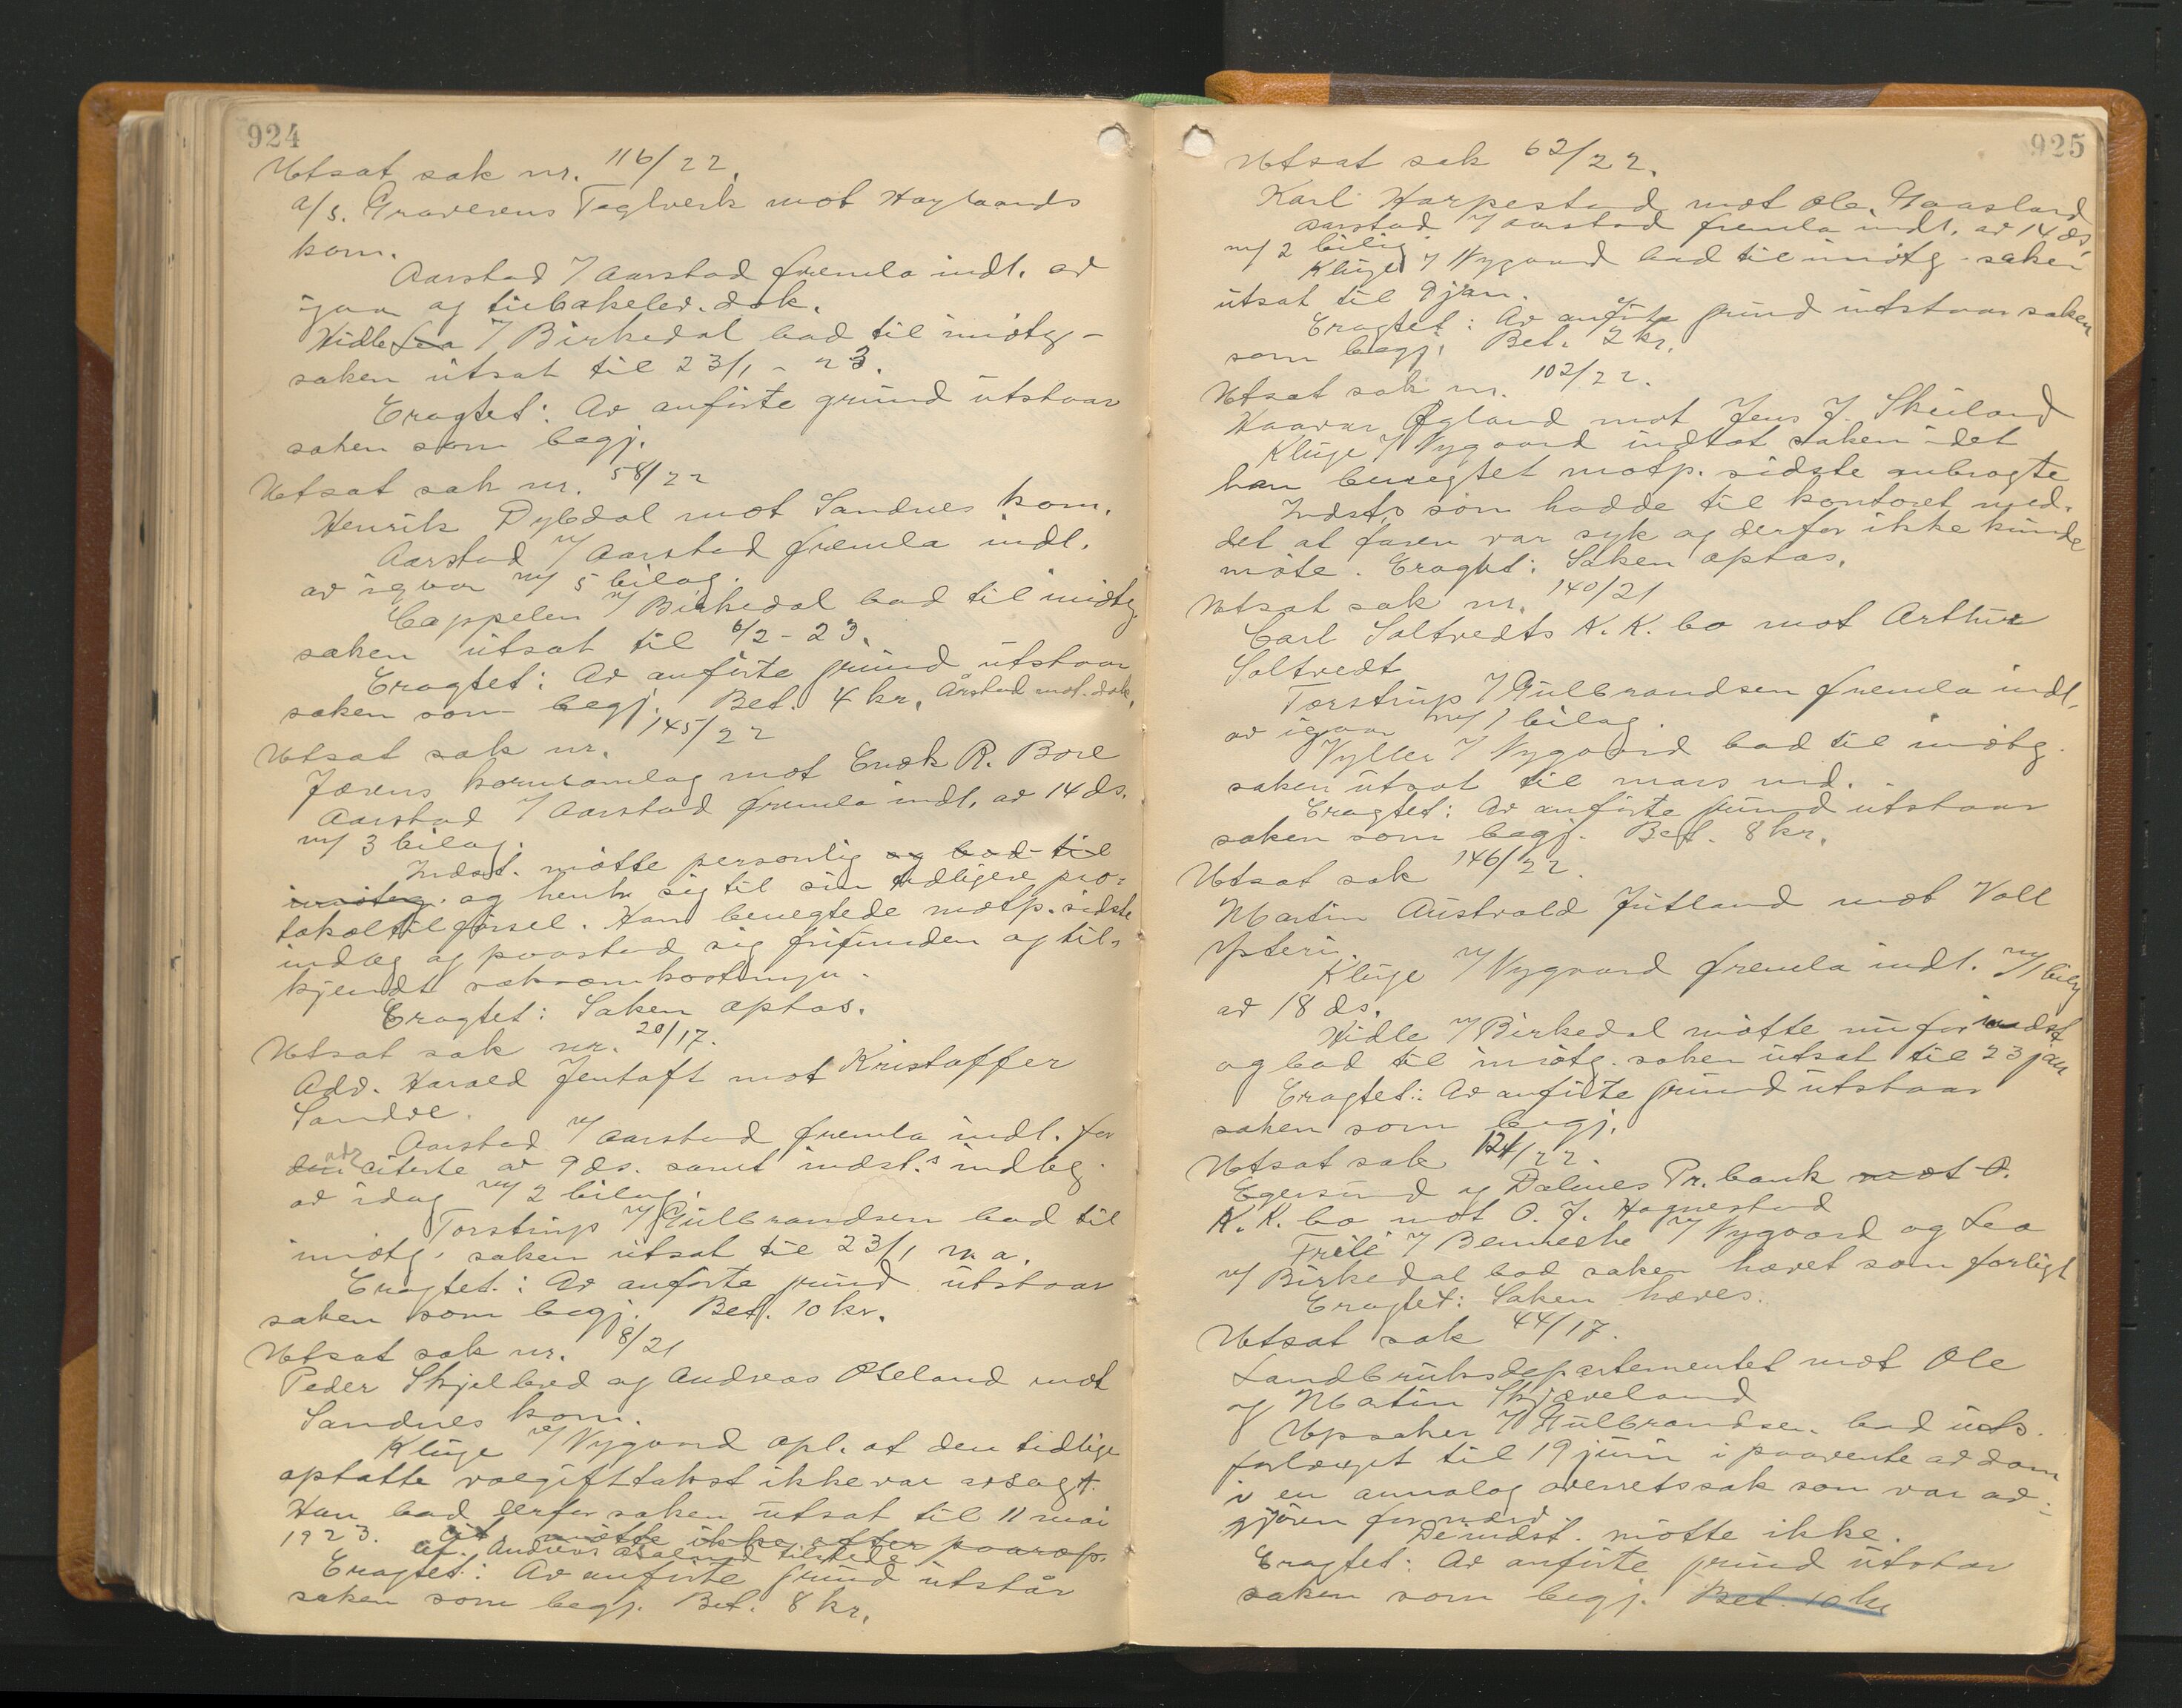 924
Utsat sak nr. 116/22.
A/s. Graverens Teglverk mot Høylaands
kom.
Aarstad v/ Aarstad fremla indl. av
igaar og tilbakelev. dok.
Hidle v/ Birkedal bad til imøtg-
saken utsat til 23/1 - 23.
Eragtet: Av anførte grund utstaar
saken som begj.
Utsat sak nr. 58/22
Henrik Dybdal mot Sandnes kom.
Aarstad v/ Aarstad fremla indl.
av igaar m/ 5 bilag.
Cappelen v/ Birkedal bad til imøtg.
saken utsat til 6/2 - 23.
Eragtet: Av anførte grund utstaar
saken som begj. Bet. 4 kr. Årstad mot. dok.
Utsat sak nr. 145/22
Jærens kornsamlag mot Enok R. Bore
Aarstad v/ Aarstad fremla indl. av 14 ds.
m/ 3 bilag.
Indst. møtte personlig og bad til
imøtg. og henh. sig til sin tidligere pro-
tokoltilførsel. Han benegtede motp. sidste
indlæg og paastod sig frifunden og til-
kjendt saksomkostninger.
Eragtet: Saken optas.
Utsat sak nr. 20/17.
Adv. Harald Jentoft mot Kristoffer
Sandve.
Aarstad v/ Aarstad fremla indl. for
den adv. citerte av 9 ds. samt indst.s indlæg
av idag m/ 2 bilag.
Torstrup v/ Gulbrandsen bad til
imøtg. saken utsat til 23/1 n.a.
Eragtet: Av anførte grund utstaar
saken som begj. Bet. 10 kr.
Utsat sak nr. 8/21
Peder Skjelbred og Andreas Oseland mot
Sandnes kom.
Kluge v/ Nygaard opl. at den tidlige
optatte voldgiftstakst ikke var avsagt.
Han bad derfor saken utsat til 11 mai
1923. Cit. møtte ikke efter paarop.
Cit. Andreas Aseland tilstede
Eragtet: Av anførte grund utstår
saken som begj. Bet. 8 kr.
925
Utsat sak 62/22.
Karl Harpestad mot Ole Gaasland
Aarstad v/ Aarstad fremla indl. av 14 ds.
m/ 2 bilag
Kluge v/ Nygaard bad til imøtg - saken
utsat til 9 jan.
Eragtet: Av anførte grund utstaar saken
som begj. Bet. 2 kr.
Utsat sak nr. 102/22.
Haavar Øgland mot Jens J. Skeiland
Kluge v/ Nygaard indlot saken idet
han benegtet motp. sidste anbragte
Indsts søn hadde til kontoret med-
delt at faren var syk og derfor ikke kunde
møte. Eragtet: Saken optas.
Utsat sak nr. 140/21
Carl Saltvedts K. K. bo mot Arthur
Saltvedt
Torstrup v/ Gulbrandsen fremla indl.
av igaar m/ 1 bilag.
Vyller v/ Nygaard bad til imøtg.
saken utsat til mars md.
Eragtet: Av anførte grund utstaar
saken som begj. Bet. 8 kr.
Utsat sak 146/22.
Martin Austvold Jutland mot Voll
Ysteri.
Kluge v/ Nygaard fremla indl. m/ 1 bilag
av 18 ds.
Hidle v/ Birkedal møtte nu for indst
og bad til imøtg. saken utsat til 23 jan
Eragtet: Av anførte grund utstaar
saken som begj.
Utsat sak 124/22.
Egersund og Dalnes Pr. bank mot O.
K. K. bo mot O. J. Hognestad
v/ Benneche v/ Nygaard og Lea
v/ Birkedal bad saken hævet som forligt
Eragtet: Saken hæves.
Utsat sak 44/17.
Landbruksdepartementet mot Ole
og Martin Skjæveland
v/ Gulbrandsen bad uts.
forlænget til 19 juni i paavente av dom
i en annalog overretssak som var av-
gjøren
De indst. møtte ikke.
Eragtet: Av anførte grund utstaar
saken som begj. Bet. 10 kr